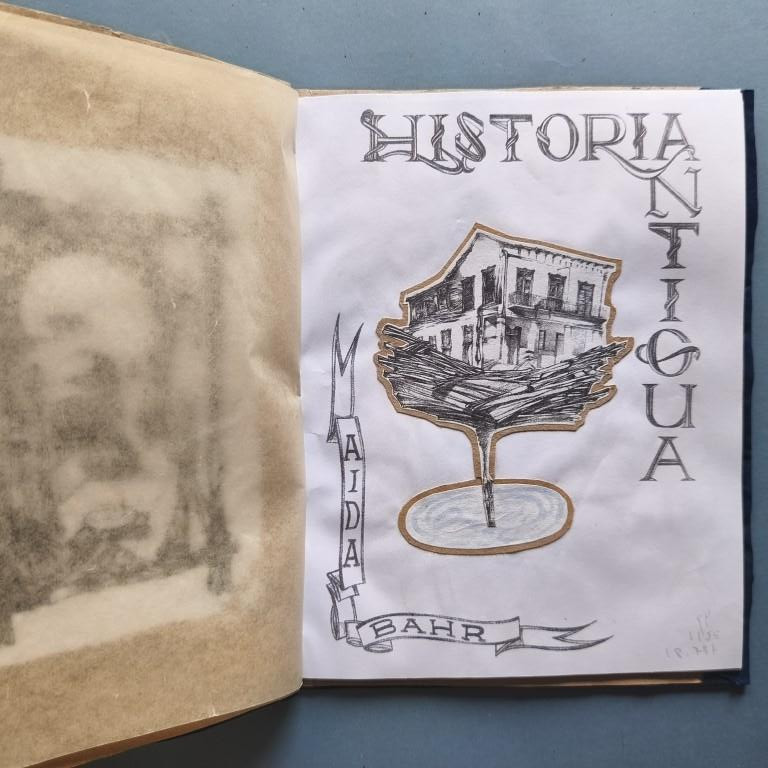 HISTORIA
ANTIGUA
MAIDA
BAHR